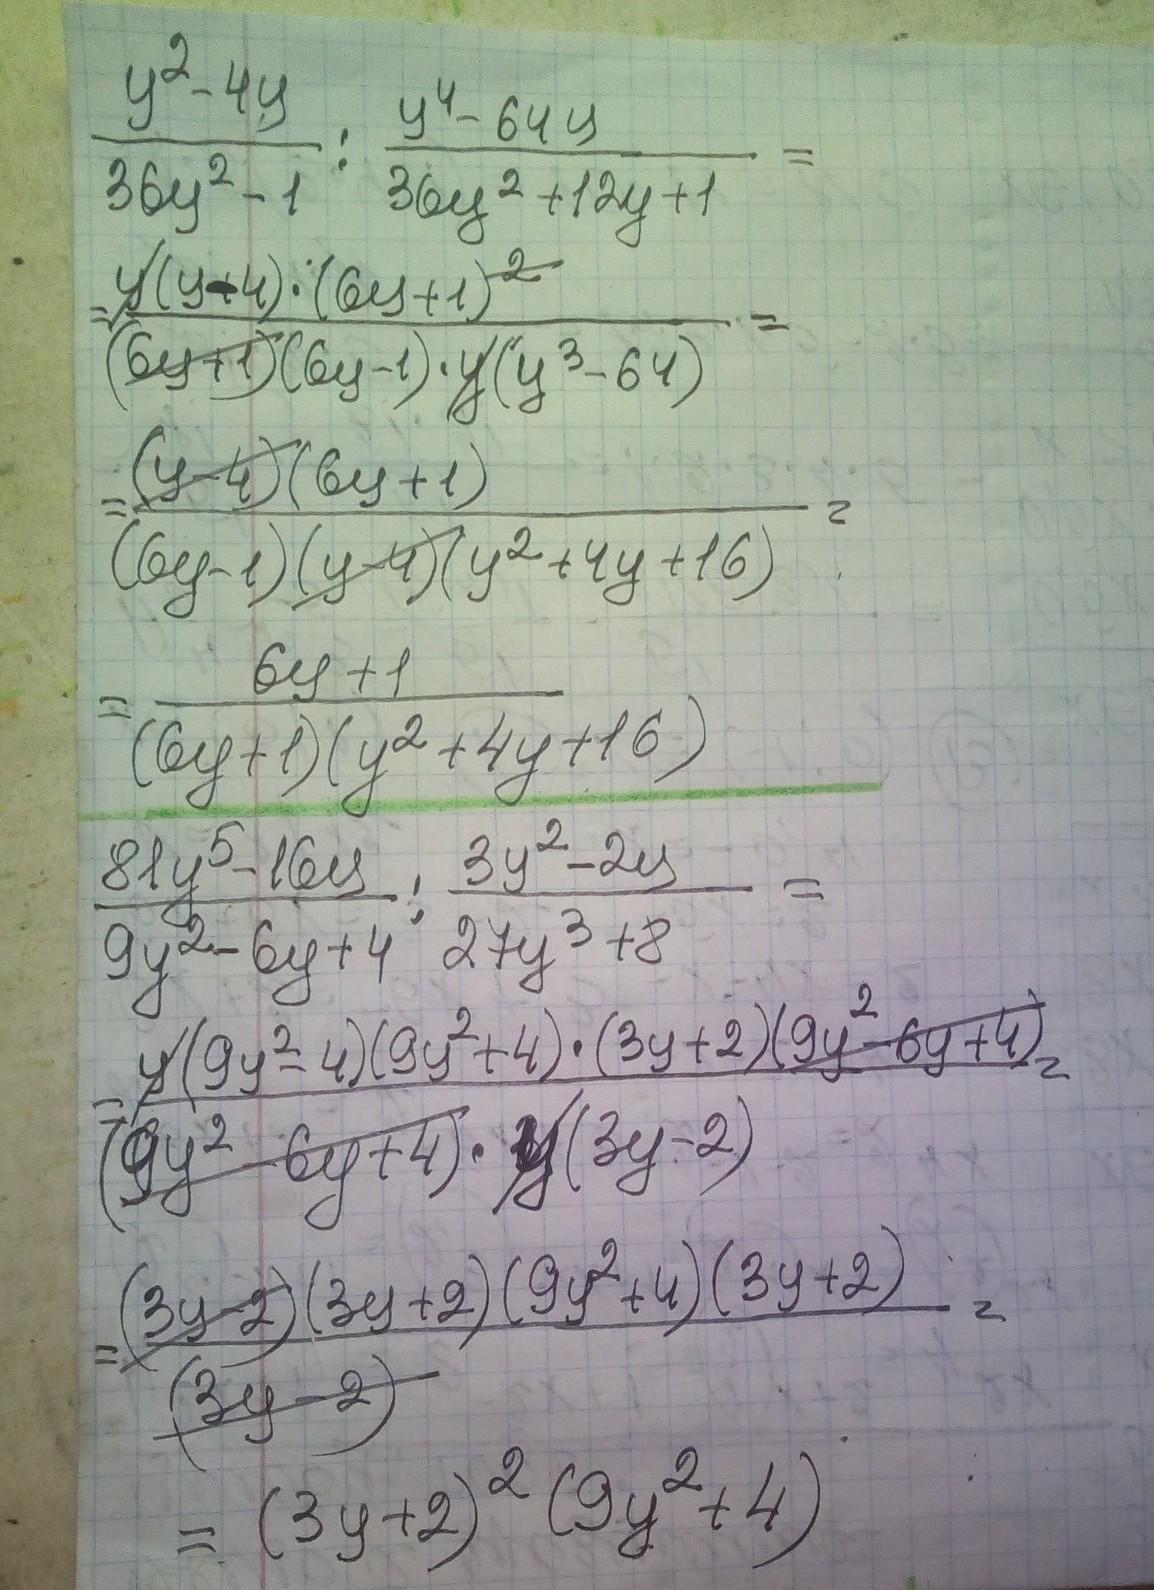 y² - 4y / 36y² - 1 : y⁴ - 64y / 36y² + 12y + 1 =
= y(y - 4) · (6y + 1)² / (6y + 1)(6y - 1) · y(y³ - 64) =
= (y - 4)(6y + 1) / (6y - 1)(y - 4)(y² + 4y + 16) =
= 6y + 1 / (6y + 1)(y² + 4y + 16)
81y⁵ - 16y / 9y² - 6y + 4 : 3y² - 2y / 27y³ + 8 =
= y(9y² - 4)(9y² + 4) · (3y + 2)(9y² - 6y + 4) / (9y² - 6y + 4) · y(3y - 2) =
= (3y - 2)(3y + 2)(9y² + 4)(3y + 2) / (3y - 2) =
= (3y + 2)² (9y² + 4)